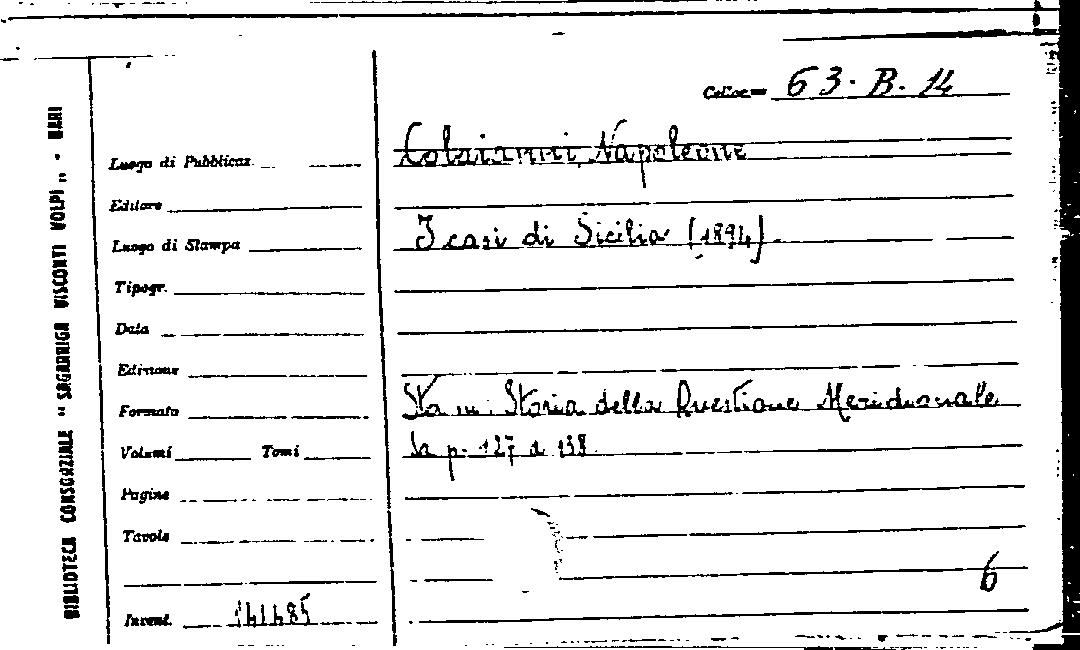 BIBLIOTECA CONSORZIALE "SAGARRIGA VISCONTI VOLPI" - BARI
Colloc. 63. B. 14
Luogo di Pubblicaz.
Colaianni, Napoleone
Editore
Luogo di Stampa
I casi di Sicilia (1894).
Tipogr.
Data
Edizione
Formato
Sta in: Storia della Questione Meridionale
Volumi Tomi
da p. 127 a 138
Pagine
Tavole
6
Invent. 141485